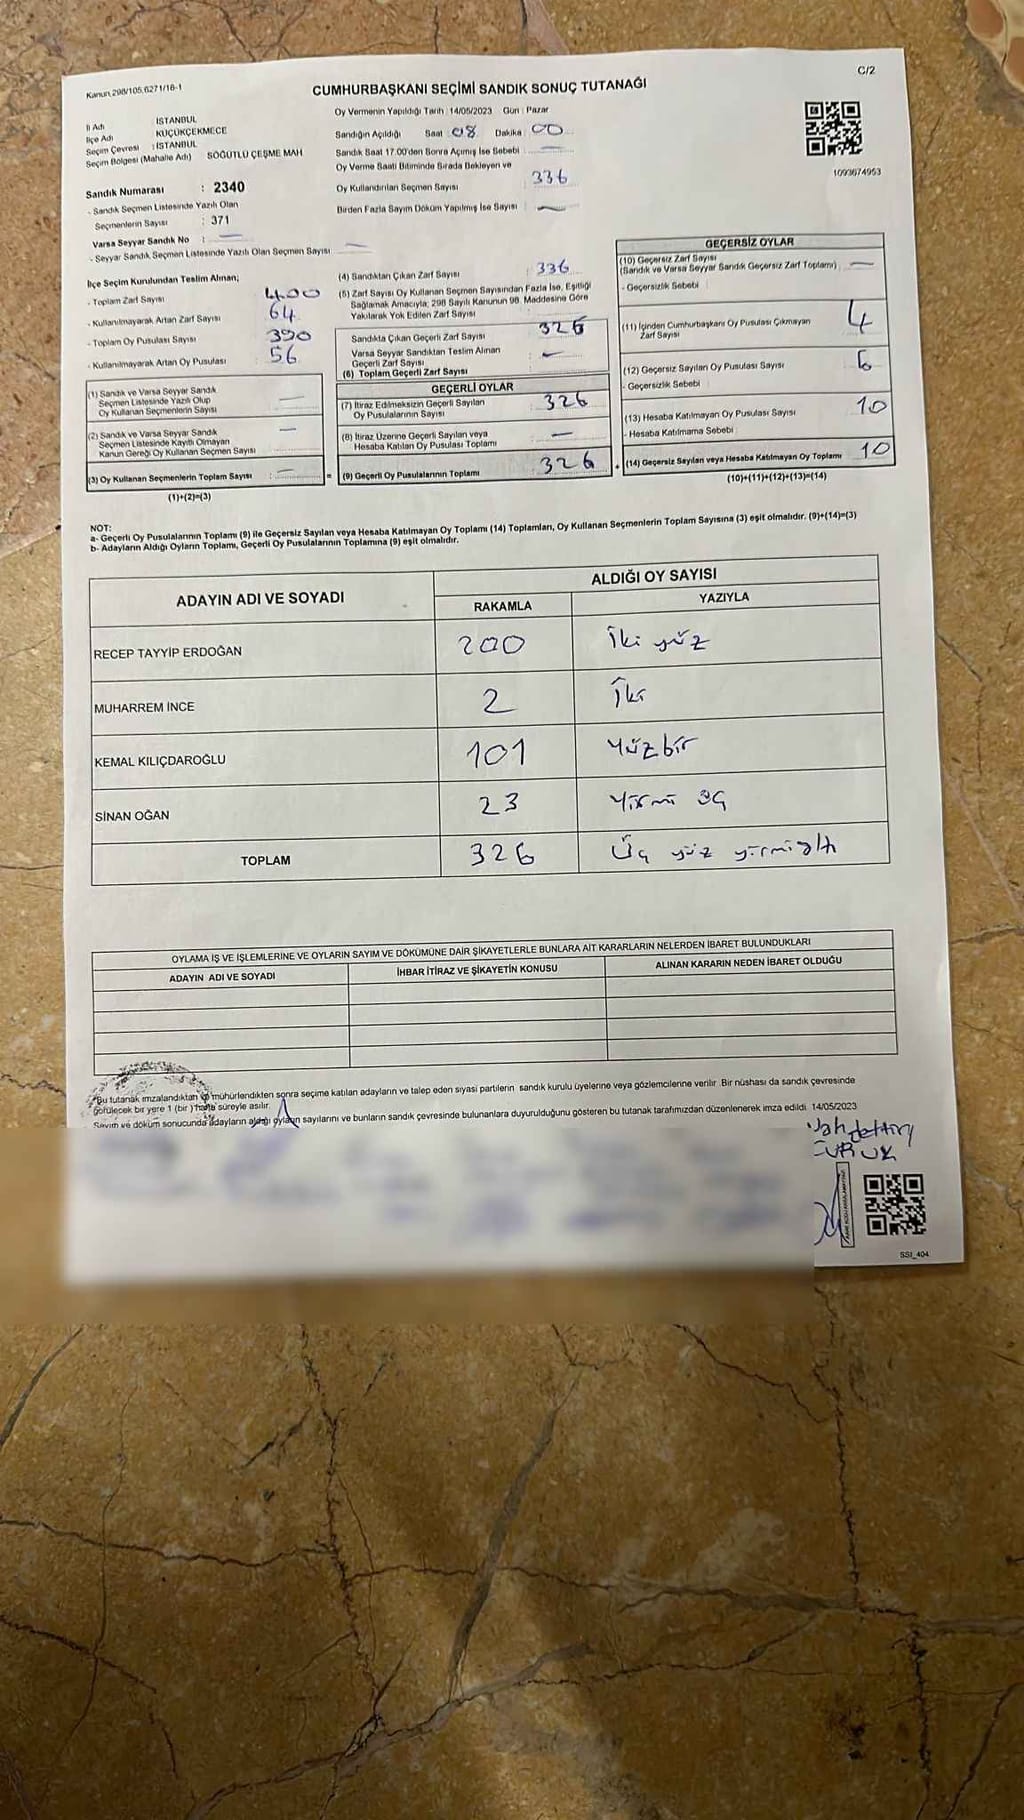 Kanun 298/105,6271/18-1
CUMHURBAŞKANI SEÇİMİ SANDIK SONUÇ TUTANAĞI
C/2
İl Adı : İSTANBUL
İlçe Adı KÜÇÜKÇEKMECE
Seçim Çevresi : İSTANBUL
Seçim Bölgesi (Mahalle Adı) SÖĞÜTLÜ ÇEŞME MAH
Sandık Numarası : 2340
- Sandık Seçmen Listesinde Yazılı Olan
Seçmenlerin Sayısı : 371
Varsa Seyyar Sandık No : —
- Seyyar Sandık Seçmen Listesinde Yazılı Olan Seçmen Sayısı —
Oy Vermenin Yapıldığı Tarih : 14/05/2023 Gün : Pazar
Sandığın Açıldığı Saat : 08 Dakika : 00
Sandık Saat 17.00'den Sonra Açımış İse Sebebi : —
Oy Verme Saati Bitiminde Sırada Bekleyen ve
Oy Kullandırılan Seçmen Sayısı : 336
Birden Fazla Sayım Döküm Yapılmış İse Sayısı : —
1093674953
İlçe Seçim Kurulundan Teslim Alınan;
- Toplam Zarf Sayısı : 400
- Kullanılmayarak Artan Zarf Sayısı : 64
- Toplam Oy Pusulası Sayısı : 390
- Kullanılmayarak Artan Oy Pusulası : 56
(1) Sandık ve Varsa Seyyar Sandık
Seçmen Listesinde Yazılı Olup
Oy Kullanan Seçmenlerin Sayısı —
(2) Sandık ve Varsa Seyyar Sandık
Seçmen Listesinde Kayıtlı Olmayan
Kanun Gereği Oy Kullanan Seçmen Sayısı —
(3) Oy Kullanan Seçmenlerin Toplam Sayısı : — =
(1)+(2)=(3)
(4) Sandıktan Çıkan Zarf Sayısı : 336
(5) Zarf Sayısı Oy Kullanan Seçmen Sayısından Fazla İse, Eşitliği
Sağlamak Amacıyla; 298 Sayılı Kanunun 98. Maddesine Göre
Yakılarak Yok Edilen Zarf Sayısı
Sandıkta Çıkan Geçerli Zarf Sayısı 326
Varsa Seyyar Sandıktan Teslim Alınan
Geçerli Zarf Sayısı —
(6) Toplam Geçerli Zarf Sayısı
GEÇERLİ OYLAR
(7) İtiraz Edilmeksizin Geçerli Sayılan
Oy Pusulalarının Sayısı 326
(8) İtiraz Üzerine Geçerli Sayılan veya
Hesaba Katılan Oy Pusulası Toplamı —
(9) Geçerli Oy Pusulalarının Toplamı 326 +
GEÇERSİZ OYLAR
(10) Geçersiz Zarf Sayısı
(Sandık ve Varsa Seyyar Sandık Geçersiz Zarf Toplamı) —
- Geçersizlik Sebebi :
(11) İçinden Cumhurbaşkanı Oy Pusulası Çıkmayan
Zarf Sayısı 4
(12) Geçersiz Sayılan Oy Pusulası Sayısı 6
- Geçersizlik Sebebi :
(13) Hesaba Katılmayan Oy Pusulası Sayısı 10
- Hesaba Katılmama Sebebi :
(14) Geçersiz Sayılan veya Hesaba Katılmayan Oy Toplamı 10
(10)+(11)+(12)+(13)=(14)
NOT:
a- Geçerli Oy Pusulalarının Toplamı (9) ile Geçersiz Sayılan veya Hesaba Katılmayan Oy Toplamı (14) Toplamları, Oy Kullanan Seçmenlerin Toplam Sayısına (3) eşit olmalıdır. (9)+(14)=(3)
b- Adayların Aldığı Oyların Toplamı, Geçerli Oy Pusulalarının Toplamına (9) eşit olmalıdır.
ADAYIN ADI VE SOYADI
ALDIĞI OY SAYISI
RAKAMLA YAZIYLA
RECEP TAYYİP ERDOĞAN 200 İki yüz
MUHARREM İNCE 2 İki
KEMAL KILIÇDAROĞLU 101 Yüzbir
SİNAN OĞAN 23 Yirmi üç
TOPLAM 326 Üç yüz yirmialtı
OYLAMA İŞ VE İŞLEMLERİNE VE OYLARIN SAYIM VE DÖKÜMÜNE DAİR ŞİKAYETLERLE BUNLARA AİT KARARLARIN NELERDEN İBARET BULUNDUKLARI
ADAYIN ADI VE SOYADI İHBAR İTİRAZ VE ŞİKAYETİN KONUSU ALINAN KARARIN NEDEN İBARET OLDUĞU
Bu tutanak imzalandıktan ve mühürlendikten sonra seçime katılan adayların ve talep eden siyasi partilerin sandık kurulu üyelerine veya gözlemcilerine verilir. Bir nüshası da sandık çevresinde
görülecek bir yere 1 (bir ) hafta süreyle asılır.
Sayım ve döküm sonucunda adayların aldığı oyların sayılarını ve bunların sandık çevresinde bulunanlara duyurulduğunu gösteren bu tutanak tarafımızdan düzenlenerek imza edildi. 14/05/2023
SSI_404